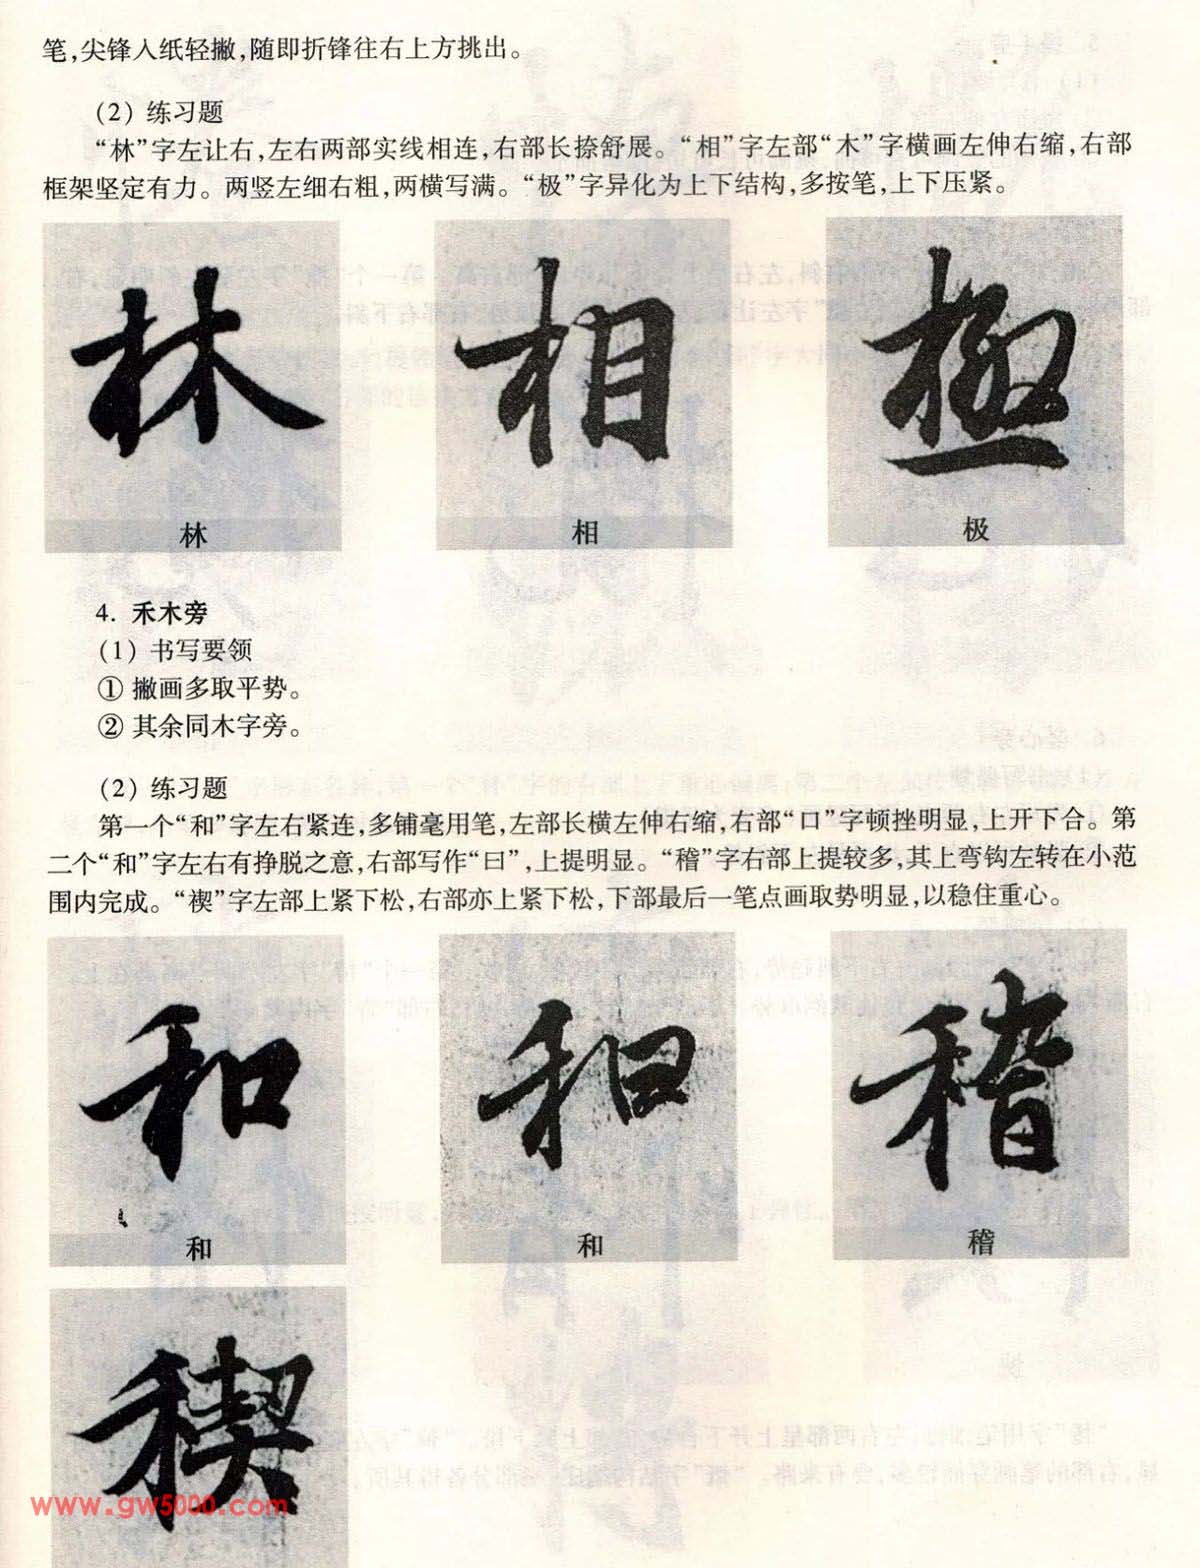 笔,尖锋入纸轻撇,随即折锋往右上方挑出。
(2) 练习题
“林”字左让右,左右两部实线相连,右部长捺舒展。“相”字左部“木”字横画左伸右缩,右部
框架坚定有力。两竖左细右粗,两横写满。“极”字异化为上下结构,多按笔,上下压紧。
林 相 極
林 相 极
4. 禾木旁
(1) 书写要领
① 撇画多取平势。
② 其余同木字旁。
(2) 练习题
第一个“和”字左右紧连,多铺毫用笔,左部长横左伸右缩,右部“口”字顿挫明显,上开下合。第
二个“和”字左右有挣脱之意,右部写作“曰”,上提明显。“稽”字右部上提较多,其上弯钩左转在小范
围内完成。“禊”字左部上紧下松,右部亦上紧下松,下部最后一笔点画取势明显,以稳住重心。
和 和 稽
和 和 稽
禊
www.gw5000.com